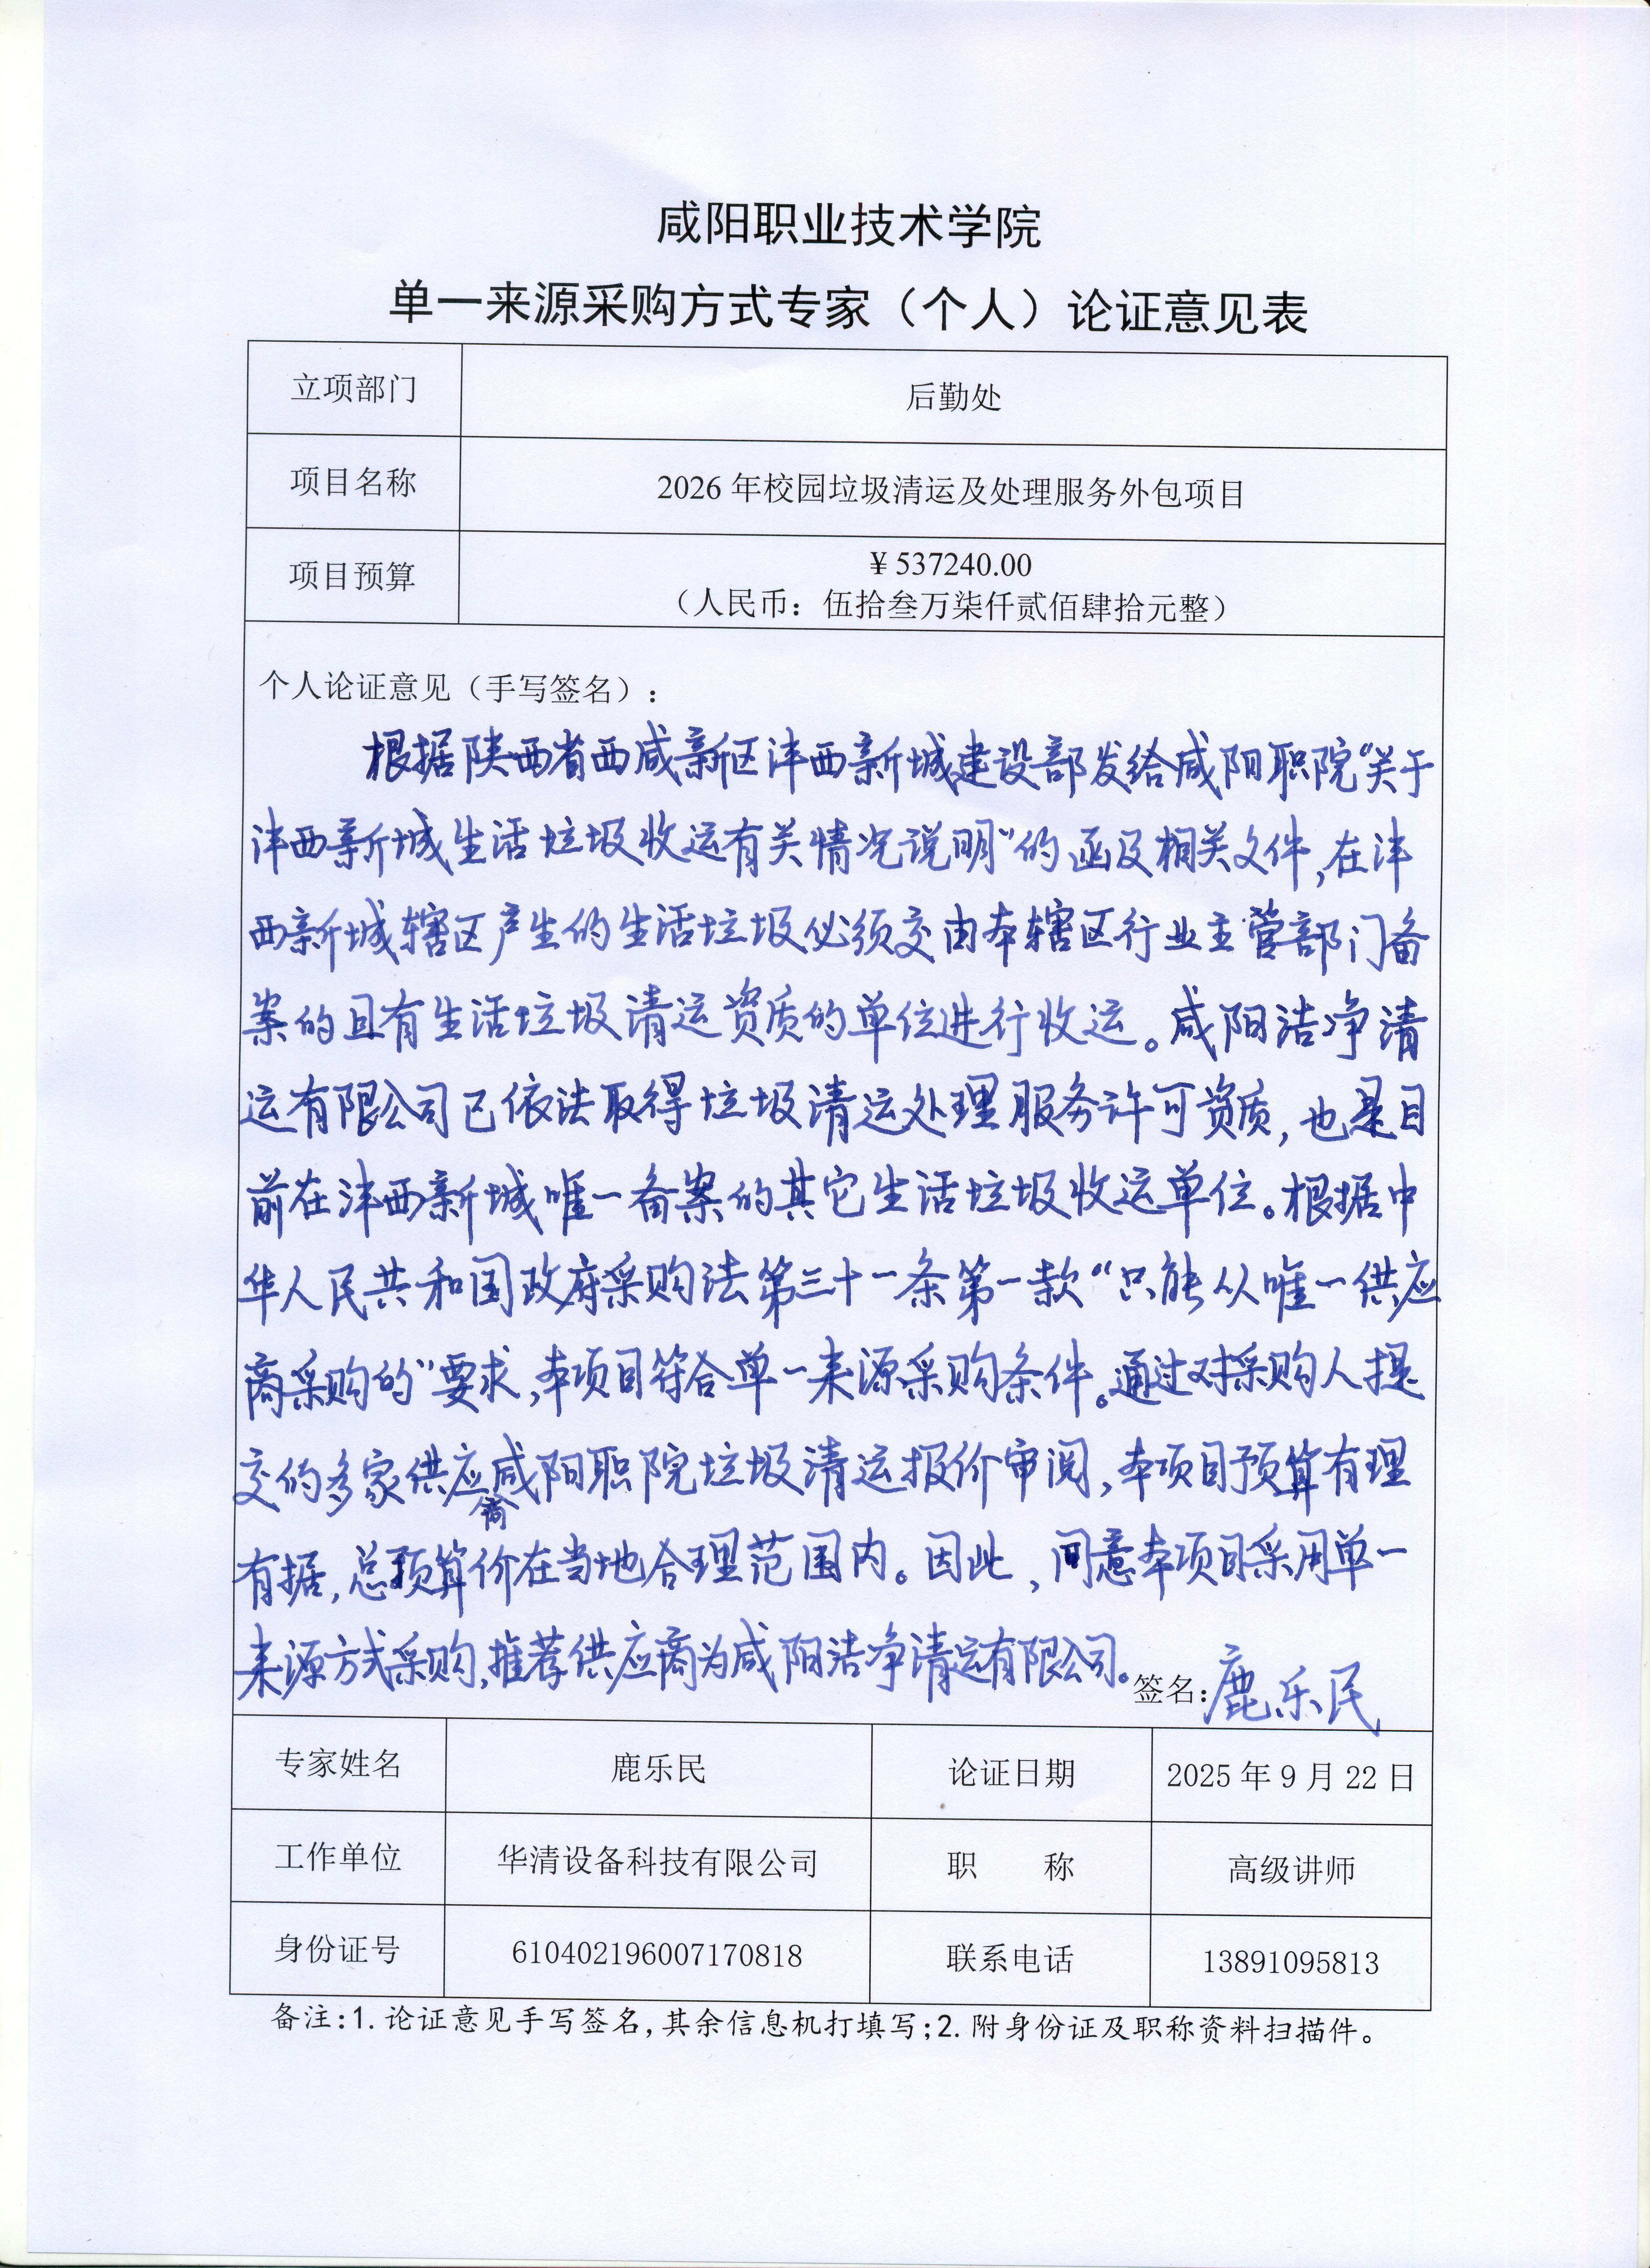 咸阳职业技术学院
单一来源采购方式专家（个人）论证意见表
立项部门 后勤处
项目名称 2026年校园垃圾清运及处理服务外包项目
项目预算 ¥537240.00
（人民币：伍拾叁万柒仟贰佰肆拾元整）
个人论证意见（手写签名）：
根据陕西省西咸新区沣西新城建设部发给咸阳职院“关于
沣西新城生活垃圾收运有关情况说明”的函及相关文件,在沣
西新城辖区产生的生活垃圾必须交由本辖区行业主管部门备
案的且有生活垃圾清运资质的单位进行收运。咸阳洁净清
运有限公司已依法取得垃圾清运处理服务许可资质,也是目
前在沣西新城唯一备案的其它生活垃圾收运单位。根据中
华人民共和国政府采购法第三十一条第一款“只能从唯一供应
商采购的”要求,本项目符合单一来源采购条件。通过对采购人提
交的多家供应商咸阳职院垃圾清运报价审阅,本项目预算有理
有据,总预算价在当地合理范围内。因此,同意本项目采用单一
来源方式采购,推荐供应商为咸阳洁净清运有限公司。
签名：鹿乐民
专家姓名 鹿乐民 论证日期 2025年9月22日
工作单位 华清设备科技有限公司 职 称 高级讲师
身份证号 610402196007170818 联系电话 13891095813
备注:1.论证意见手写签名,其余信息机打填写;2.附身份证及职称资料扫描件。